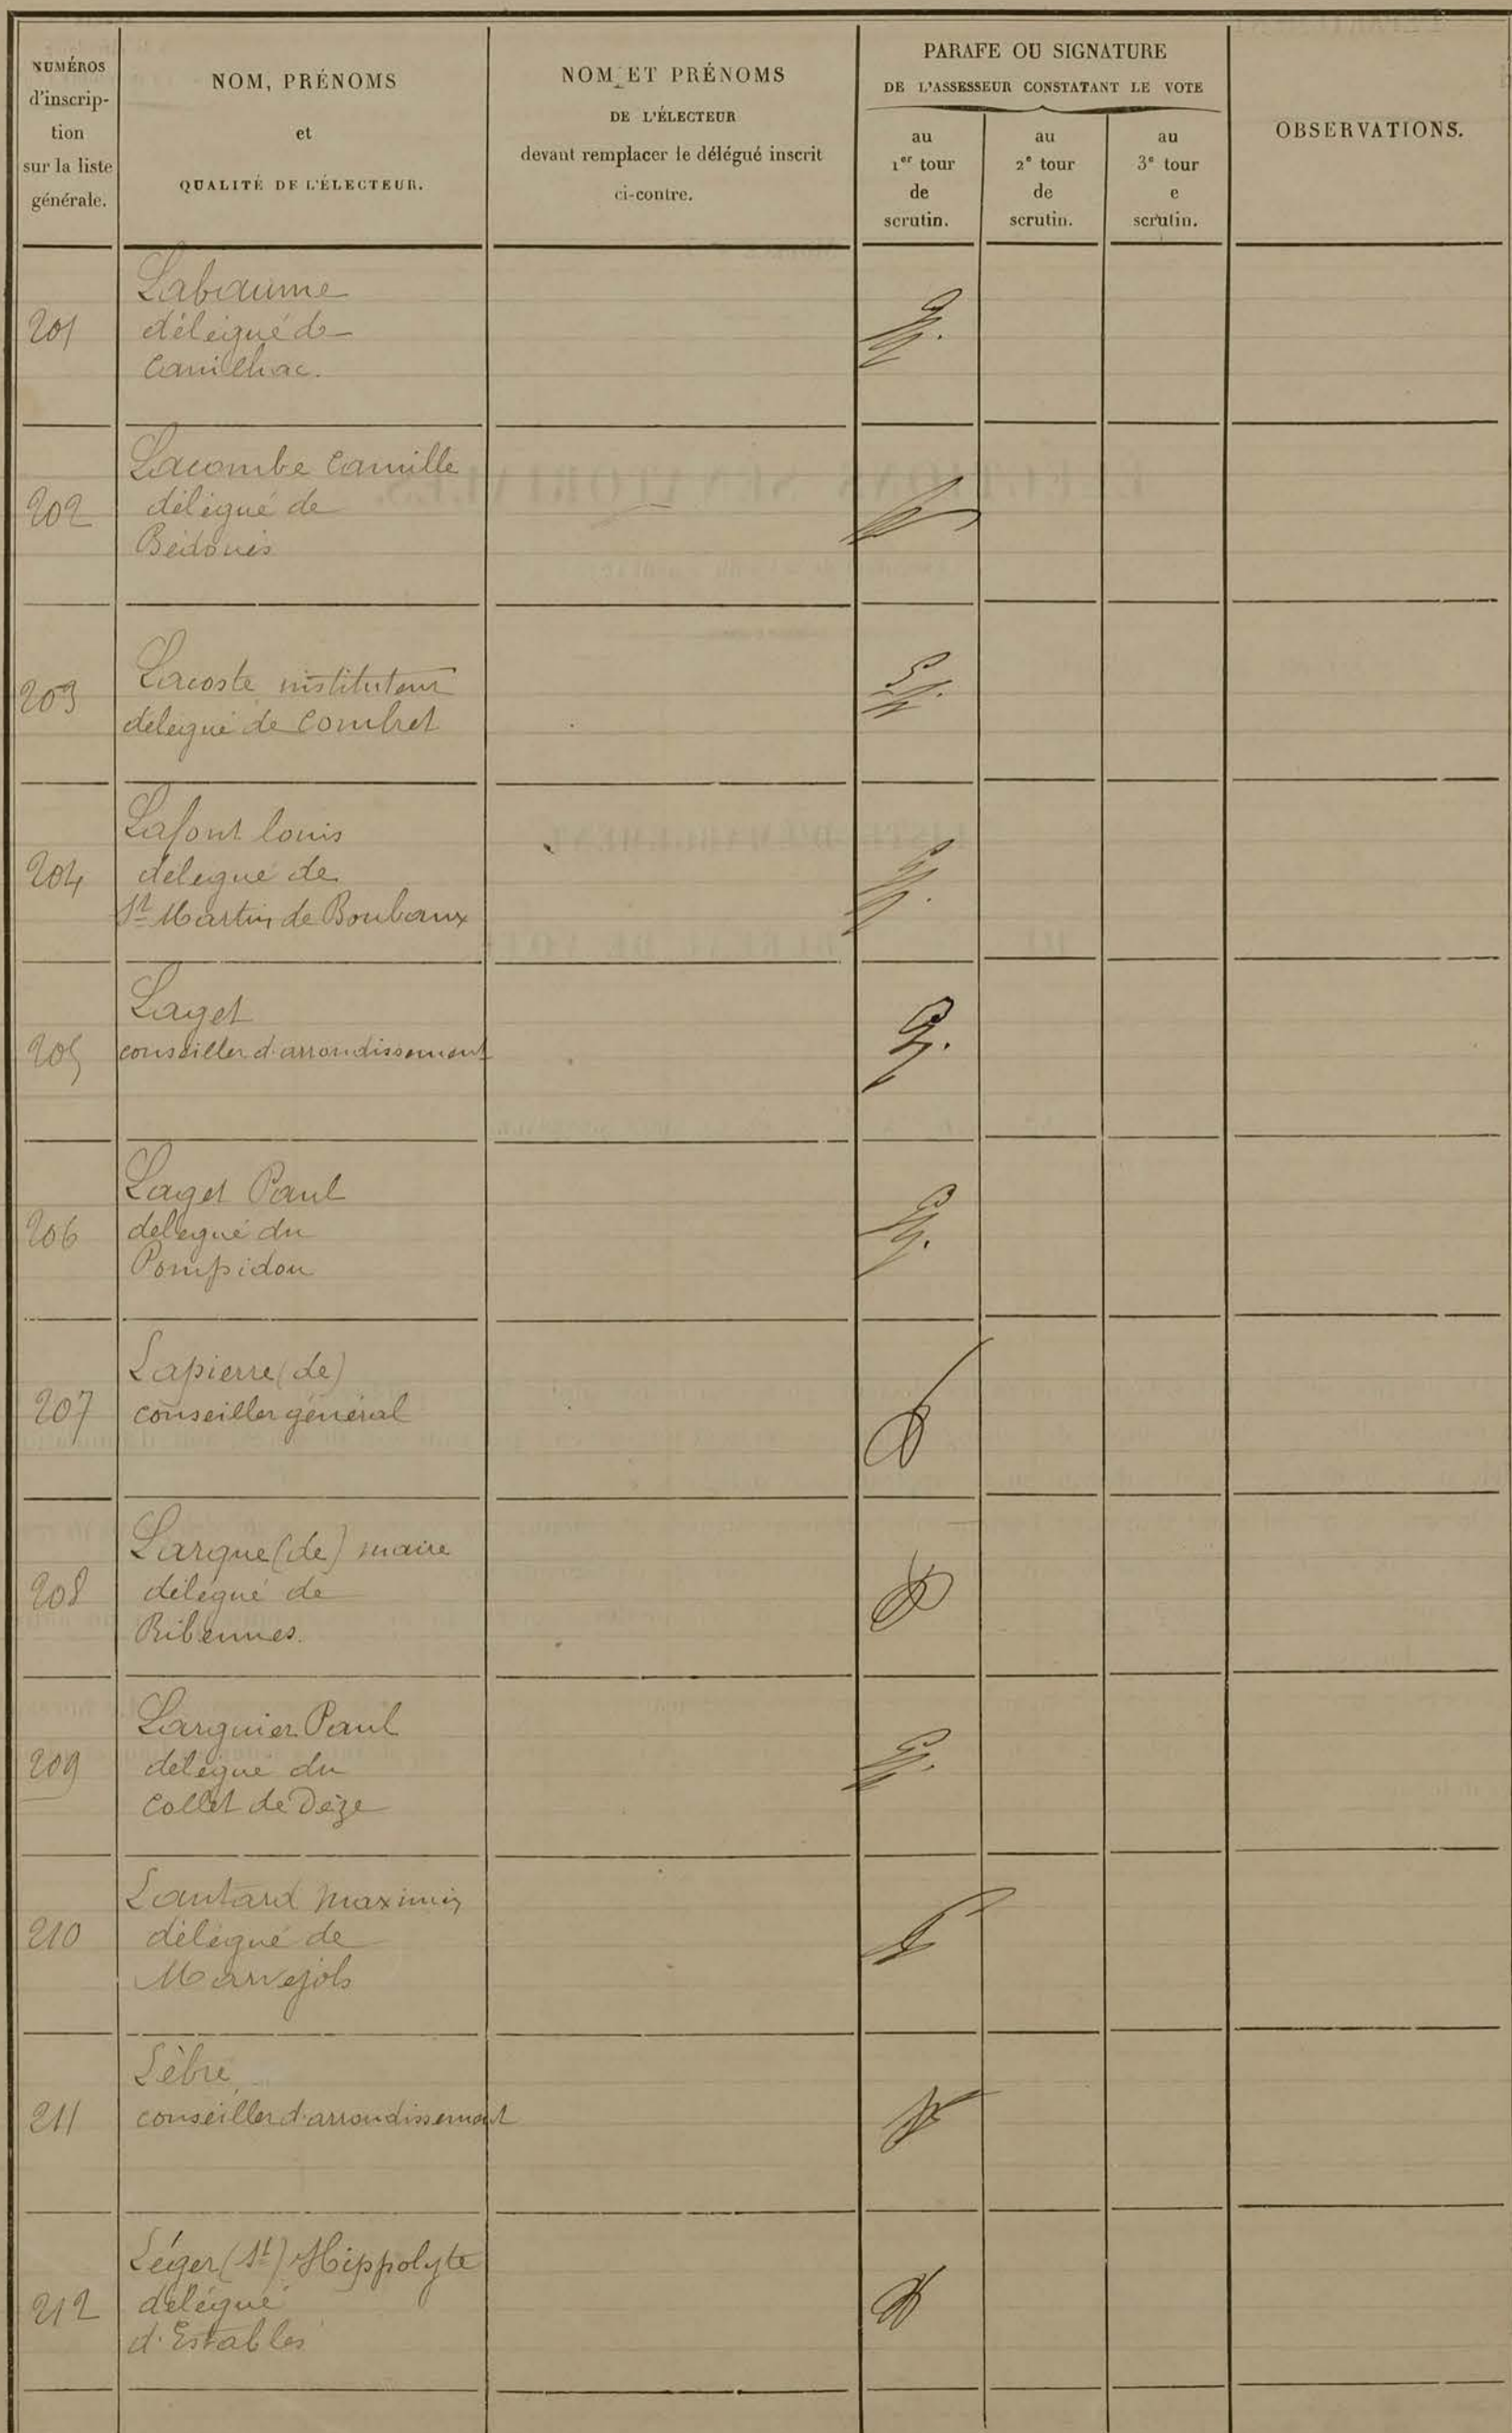 NUMÉROS
d'inscrip-
tion
sur la liste
générale.
NOM, PRÉNOMS
et
QUALITÉ DE L'ÉLECTEUR.
NOM ET PRÉNOMS
DE L'ÉLECTEUR
devant remplacer le délégué inscrit
ci-contre.
PARAFE OU SIGNATURE
DE L'ASSESSEUR CONSTATANT LE VOTE
au
1er tour
de
scrutin.
au
2e tour
de
scrutin.
au
3e tour
e
scrutin.
OBSERVATIONS.
201
Labaume
délégué de
Canilhac.
202
Lacombe Camille
délégué de
Bédouès
203
Lacoste instituteur
délégué de Combret
204
Lafont louis
délégué de
St Martin de Boubaux
205
Laget
conseiller d'arrondissement
206
Laget Paul
délégué du
Pompidou
207
Lapierre (de)
conseiller général
208
Larque (de) maire
délégué de
Ribennes.
209
Larguier Paul
délégué du
Collet de Dèze
210
Lautard Maximin
délégué de
Marvejols
211
Lèbre
conseiller d'arrondissement
212
Léger (St) Hippolyte
délégué
d'Estables